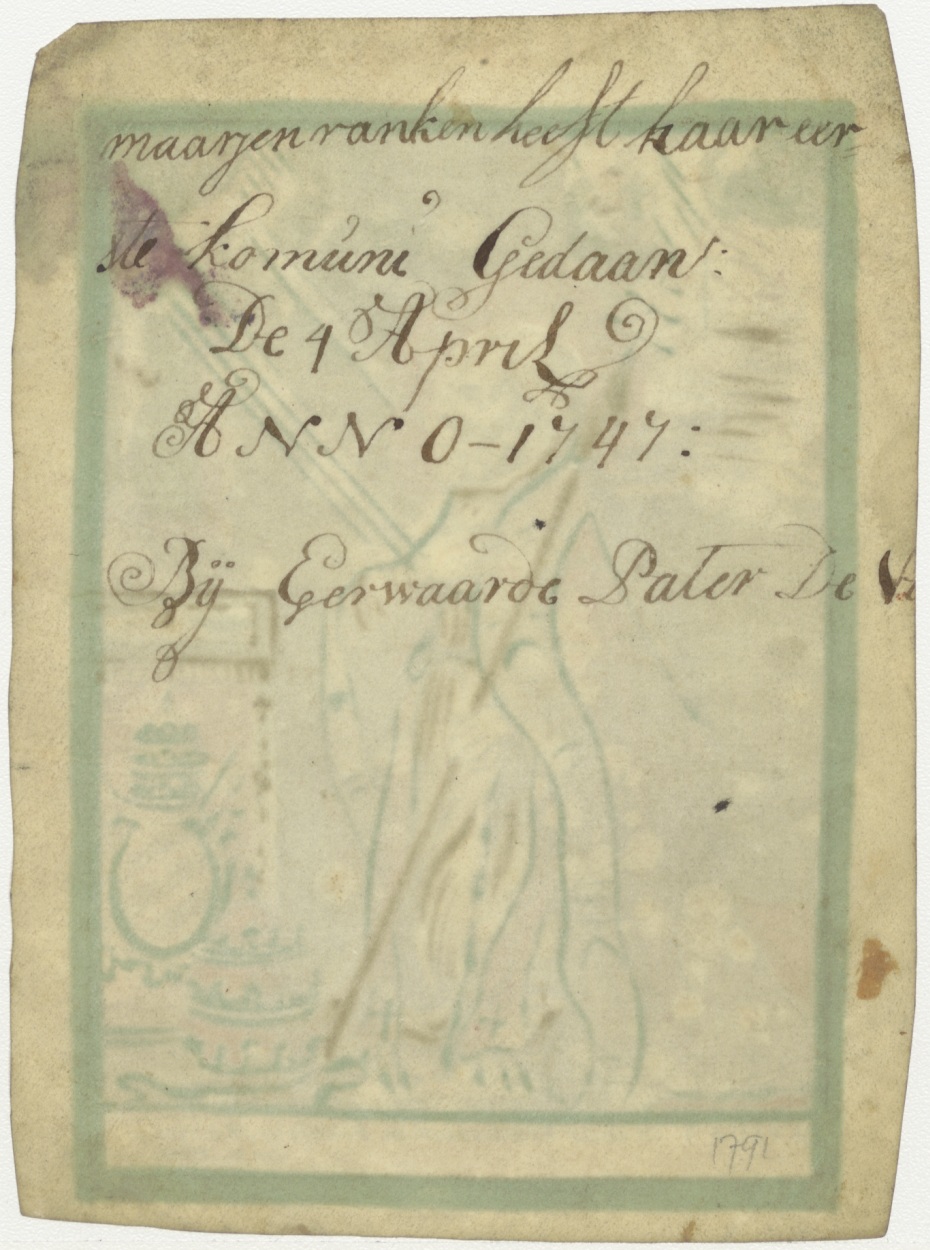 maarjen ranken heeft haar eer-
ste komúni Gedaan:
De 4 April
ANNO-1747:
Bÿ Eerwaarde Pater De
1791